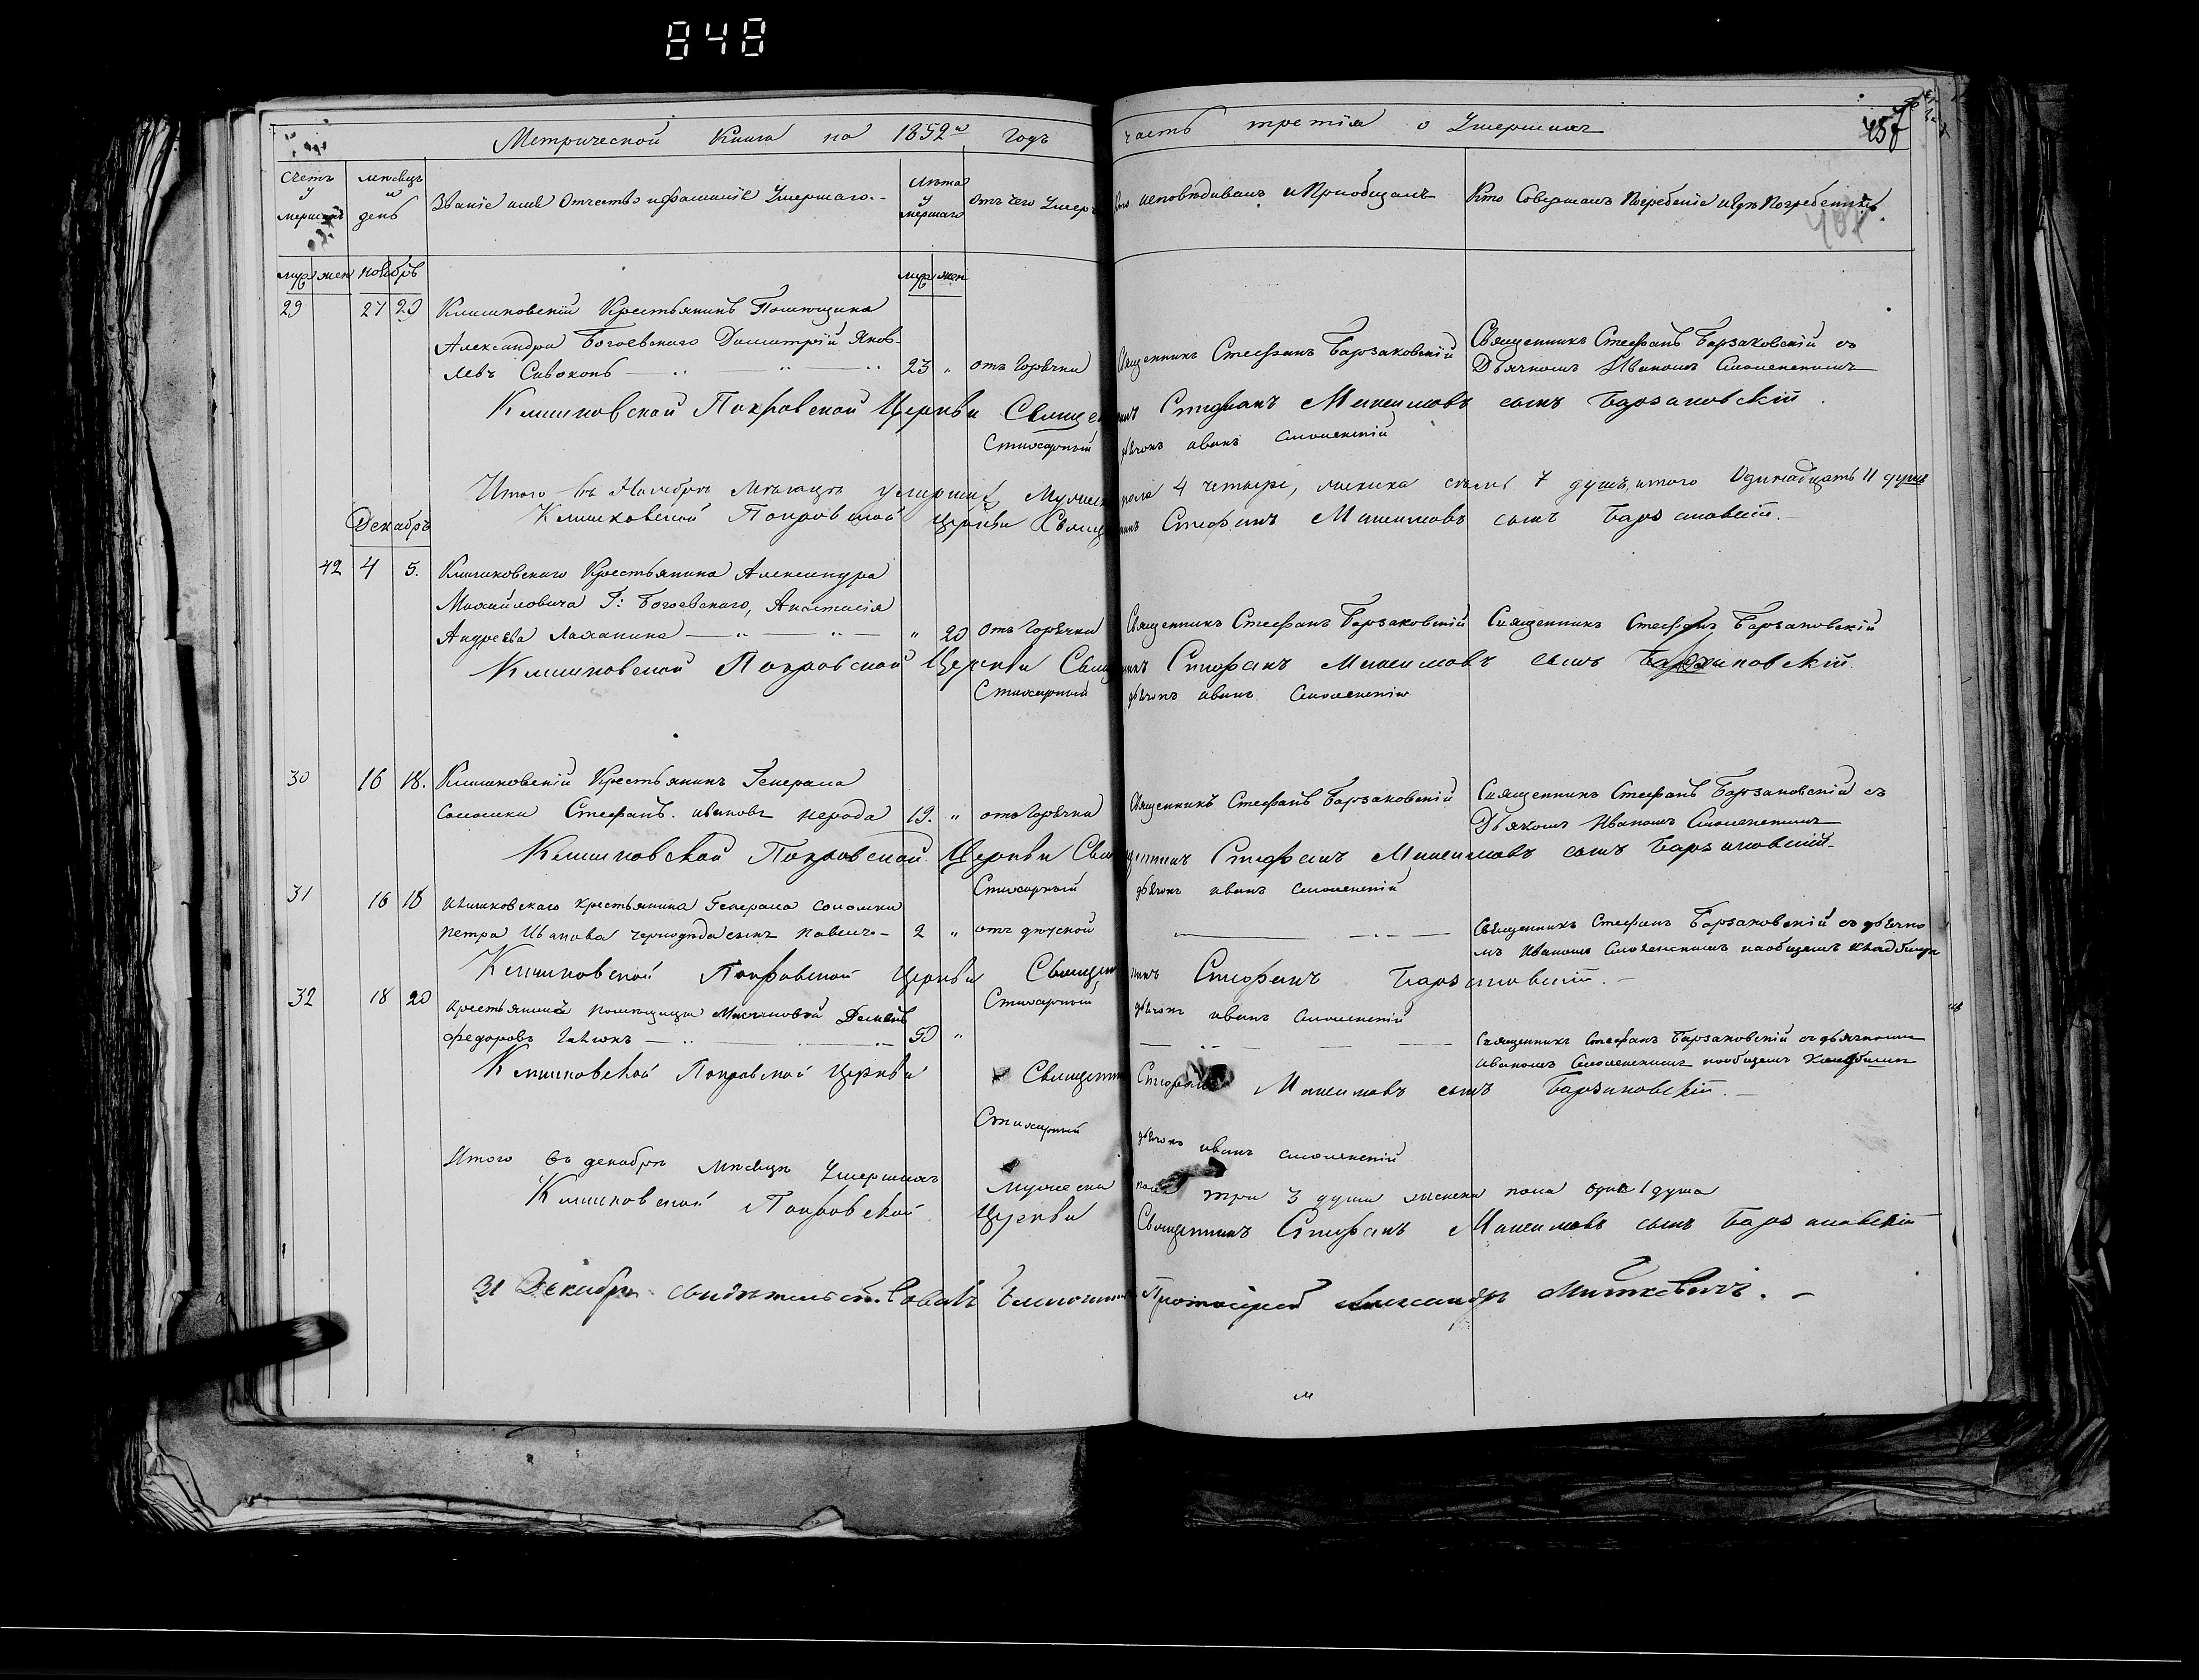 848
Метрической Книги на 1852й годъ часть третія о Умершихъ
457
Счетъ умершихъ
мѣсяцъ и день
Званіе имя Отчество и фамиліе Умершаго.
Лѣта умершаго
Отъ чего Умеръ
Кто исповѣдывалъ и Пріобщалъ
Кто Совершалъ Погребеніе и гдѣ Погребенны
муж жен ноябрь муж жен
29 27 29 Клишковскій Крестьянинъ Помѣщика
Александра Богаевскаго Димитрій Яков-
левъ Сивоконь 23 „ отъ Горячки Священникъ Стефанъ Барзаковскій Священникъ Стефанъ Барзаковскій съ
Дьячкомъ Иваномъ Смоленскимъ
Клишковской Покровской Церкви Священникъ Стефанъ Максимовъ сынъ Барзаковскій.
Стихарный дьячокъ иванъ смоленскій
Итого въ Ноябрѣ Мѣсяцѣ умершихъ Мужеска пола 4 четыре, женска семь 7 душъ, итого Одинадцать 11 душъ
Клишковской Покровской Церкви Священникъ Стефанъ Максимовъ сынъ Барзаковскій.
Декабрь
42 4 5. Клишковскаго Крестьянина Александра
Михайловича Г: Богаевскаго, Анастасія
Андреева 20 отъ Горячки Священникъ Стефанъ Барзаковскій Священникъ Стефанъ Барзаковскій
Клишковской Покровской Церкви Священникъ Стефанъ Максимовъ сынъ Барзаковскій.
Стихарный дьячокъ иванъ Смоленскій
30 16 18. Клишковскій Крестьянинъ Генерала
Соломки Стефанъ. ивановъ нерода 19. „ отъ Горячки Священникъ Стефанъ Барзаковскій Священникъ Стефанъ Барзаковскій съ
Дьячкомъ Иваномъ Смоленскимъ
Клишковской Покровской Церкви Священникъ Стефанъ Максимовъ сынъ Барзаковскій
Стихарный дьячокъ иванъ смоленскій
31 16 18 Клишковскаго крестьянина Генерала соломки
петра Иванова сынъ 2 „ отъ Священникъ Стефанъ Барзаковскій съ дьячко
мъ Иваномъ Смоленскимъ наобщемъ кладбищѣ
Клишковской Покровской Церкви Священникъ Стефанъ Барзаковскій.
Стихарный дьячокъ иванъ Смоленскій
32 18 20 крестьянинъ помѣщицы
федоровъ 50 „ Священникъ Стефанъ Барзаковскій съ дьячкомъ
иваномъ Смоленскимъ наобщемъ
Клишковской Покровской Церкви Священникъ Стефанъ Максимовъ сынъ Барзаковскій.
Стихарный дьячокъ иванъ смоленскій
Итого въ декабрѣ мѣсяцѣ Умершихъ Мужеска пола три 3 души женска пола одна 1 душа
Клишковской Покровской Церкви Священникъ Стефанъ Максимовъ сынъ Барзаковскій
31 Декабря свидѣтельствовалъ Благочинный Протоіерей Александръ Миткевичъ.